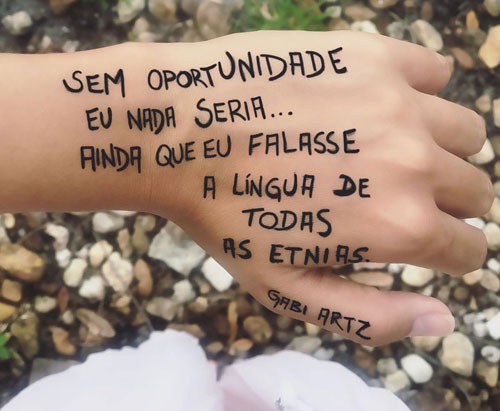 SEM OPORTUNIDADE
EU NADA SERIA...
AINDA QUE EU FALASSE
A LÍNGUA DE
TODAS
AS ETNIAS.
GABI ARTZ